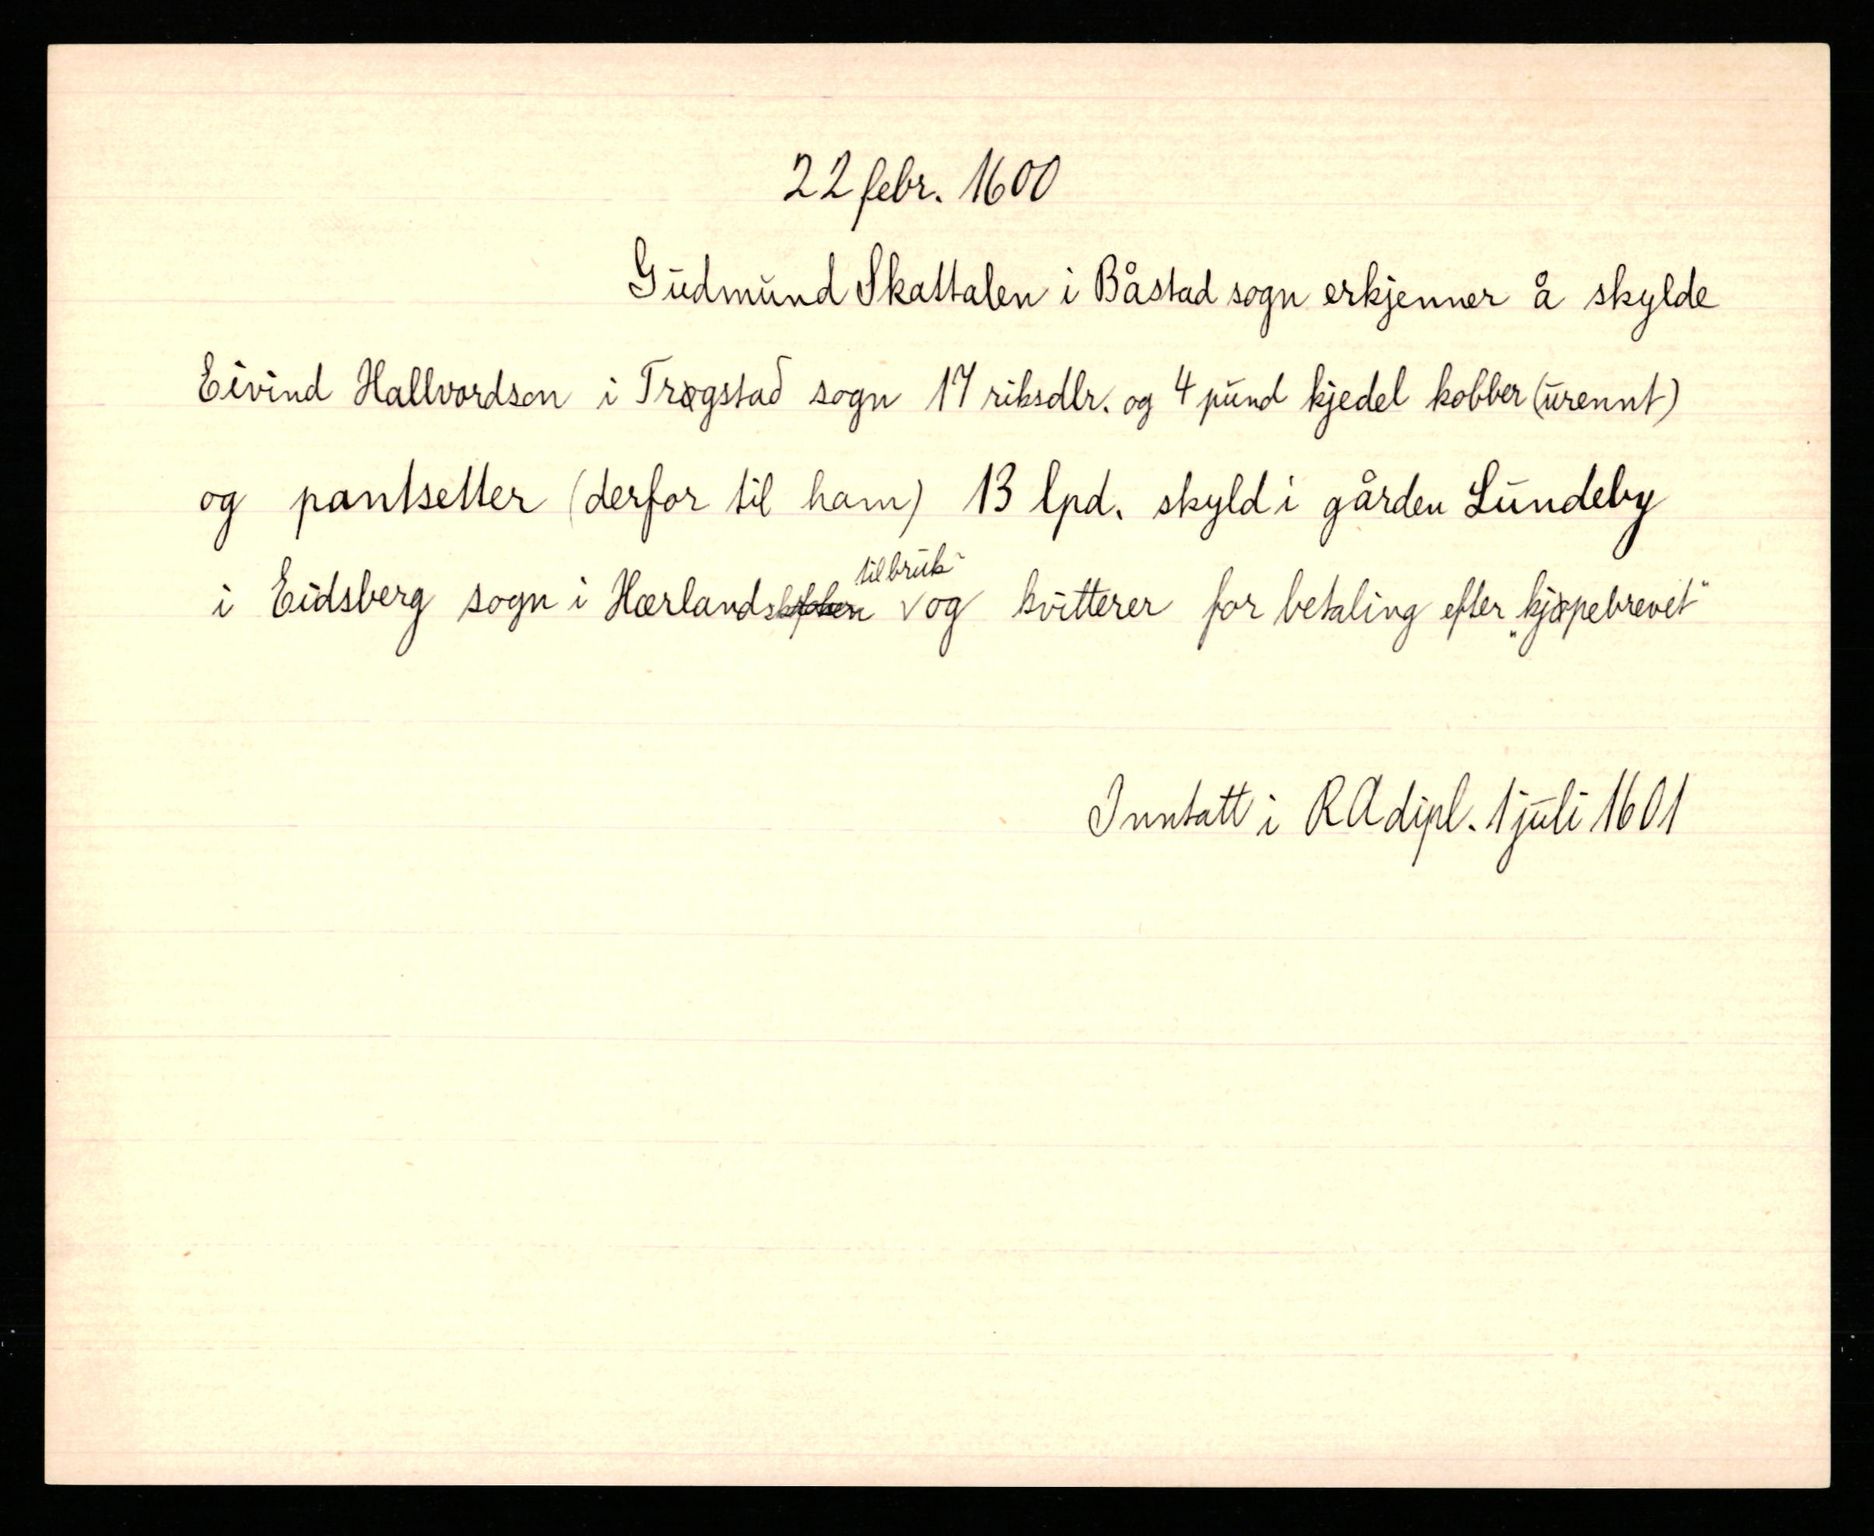 22 febr. 1600
Gudmund Skattalen i Båstad sogn erkjenner å skylde
Eivind Hallvordson i Trøgstad sogn 17 riksdlr. og 4 pund kjedel kobber (urennt)
og pantsetter (derfor til ham) 13 lpd. skyld i gården Lundeby
i Eidsberg sogn i Hærland til bruk og kvitterer for betaling efter „kjøpebrevet“
Inntatt i RA dipl. 1 juli 1601